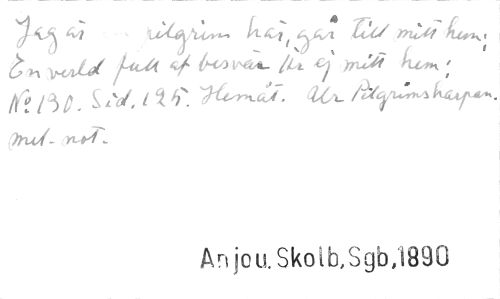 Jag är en pilgrim här, går till mitt hem;
En verld full af besvär Är ej mitt hem;
No 130. Sid. 125. Hemåt. Ur Pilgrimsharpan.
mel. not.
Anjou. Skolb, Sgb, 1890